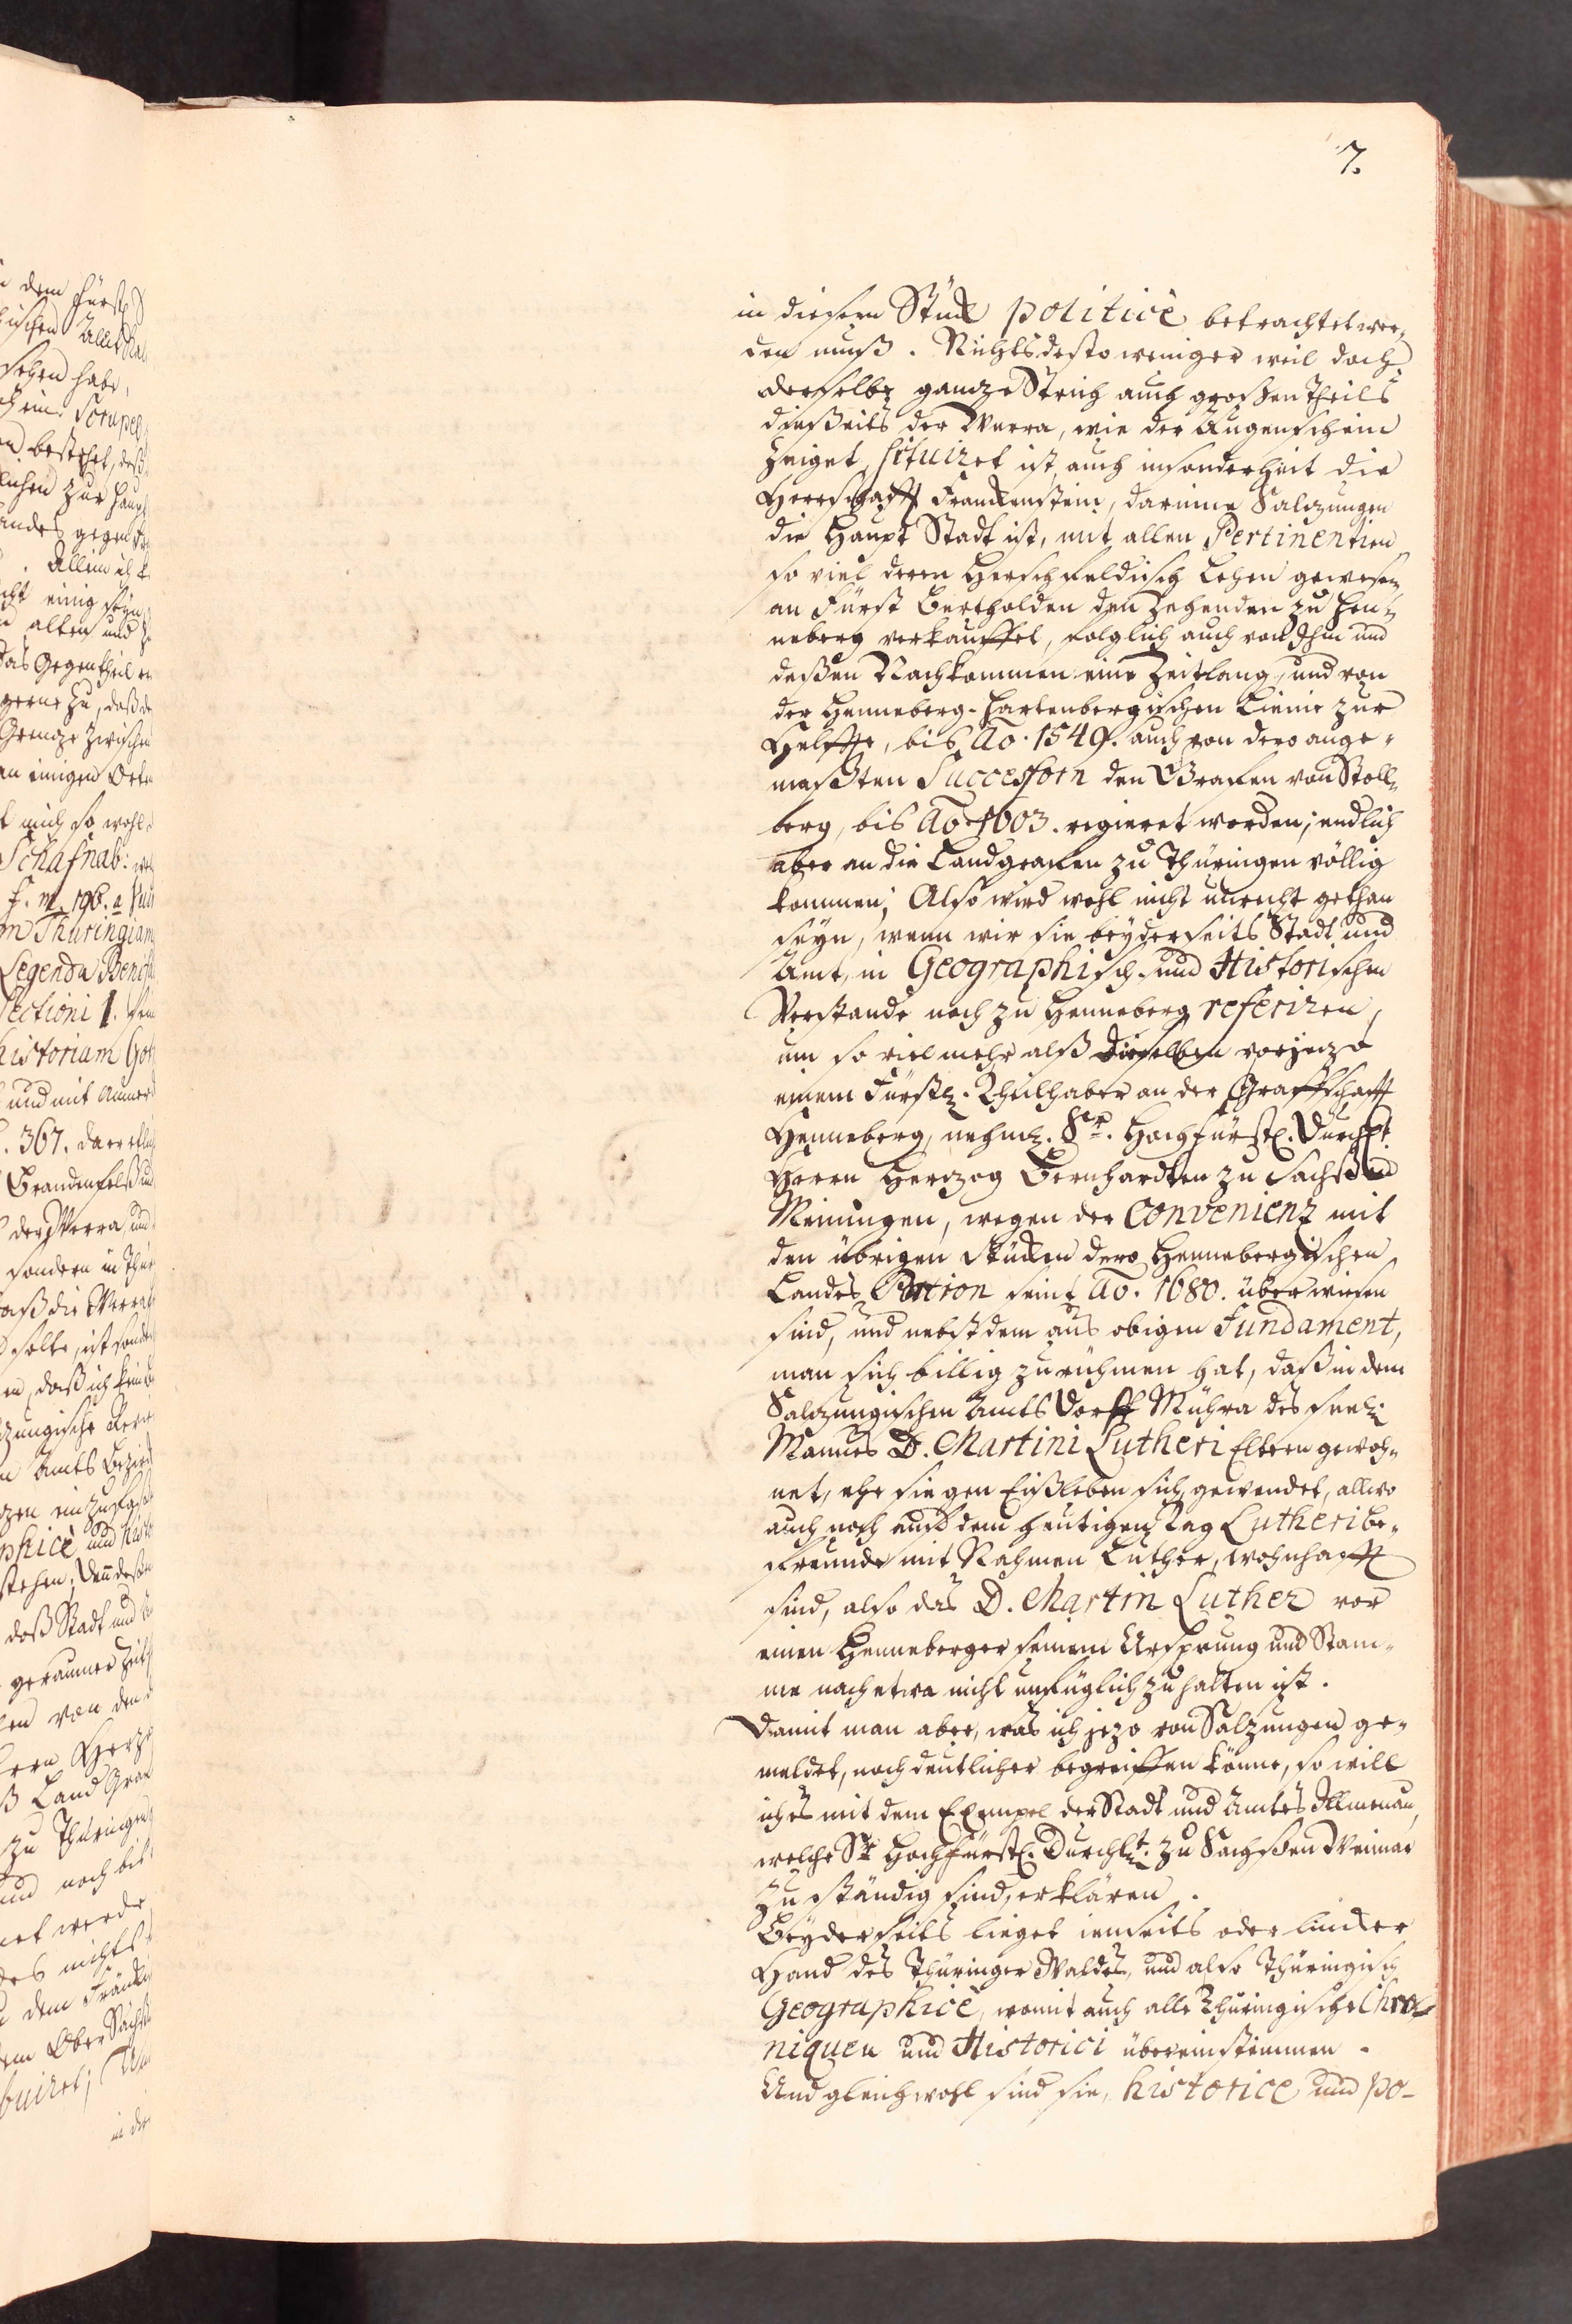 7.
in diesem Stück politicè betrachtet wer„
den muß. Nichtsdesto weniger weil doch
derselbe gantze Strich auch großen Theils
dießeits der Werra, wie der Augenschein
zeiget, situiret ist, auch insonderheit die
Herrschafft Franckenstein, darinne Saltzungen
die Haupt Stadt ist, mit allen Pertinentien
so viel deren Herschfeldisch Lehen gewesen
an Fürst Bertholden den Zehenden zu Hen„
neberg verkauffet, folglich auch von Ihm und
deßen Nachkommen eine Zeitlang, und von
der Henneberg-Hartenbergischen Linie zur
Helffte, bis Ao. 1549. auch von dero ange„
maßten Successorn den Grafen von Stoll„
berg, bis Ao. 1603. regieret worden; endlich
aber an die Landgrafen zu Thüringen völlig
kommen; Also wird wohl nicht unrecht gethan
seyn, wenn wir sie beyderseits Stadt und
Amt, in Geographisch- und Historischen
Verstande noch zu Henneberg referiren,
um so viel mehr alß dieselben vorjezo
einem Fürstl. Theilhaber an der Graffschafft
Henneberg, nehml. Sr. Hochfürstl. Durchlt.
Herrn Hertzog Bernhardten zu Sachßen
Meiningen, wegen der Convenienz mit
den übrigen stücken dero Hennebergischen
Landes Portion seint Ao. 1680. überwiesen
sind, und nebst dem aus obigen Fundament,
man sich billig zu rühmen hat, daß in dem
Saltzungischen Amts Dorff Mühra des seel.
Mannes D. Martini Lutheri Eltern gewoh„
net, ehe sie gen Eißleben sich gewendet, allwo
auch noch auf dem heutigen Tag Lutheri be„
freunde mit Nahmen Luther, wohnhafft
sind, also das D. Martin Luther vor
einen Henneberger seinem Ursprung und Stam„
me nach etwa nicht unfüglich zu halten ist.
Damit man aber, was ich jezo von Salzungen ge„
meldet, noch deutlicher begreiffen könne, so will
ich es mit dem Exempel der Stadt und Amtes Illmenau,
welche Sr. Hochfürstl. Durchlt. zu Sachßen Weimar
zuständig sind, erklären.
Beyderseits lieget ienseits oder lincker
Hand des Thüringer Waldes, und also Thüringisch
Geographicè, womit auch alle Thüringische Chro„
niquen und Historici übereinstimmen.
Und gleichwohl sind sie, historicè und po-